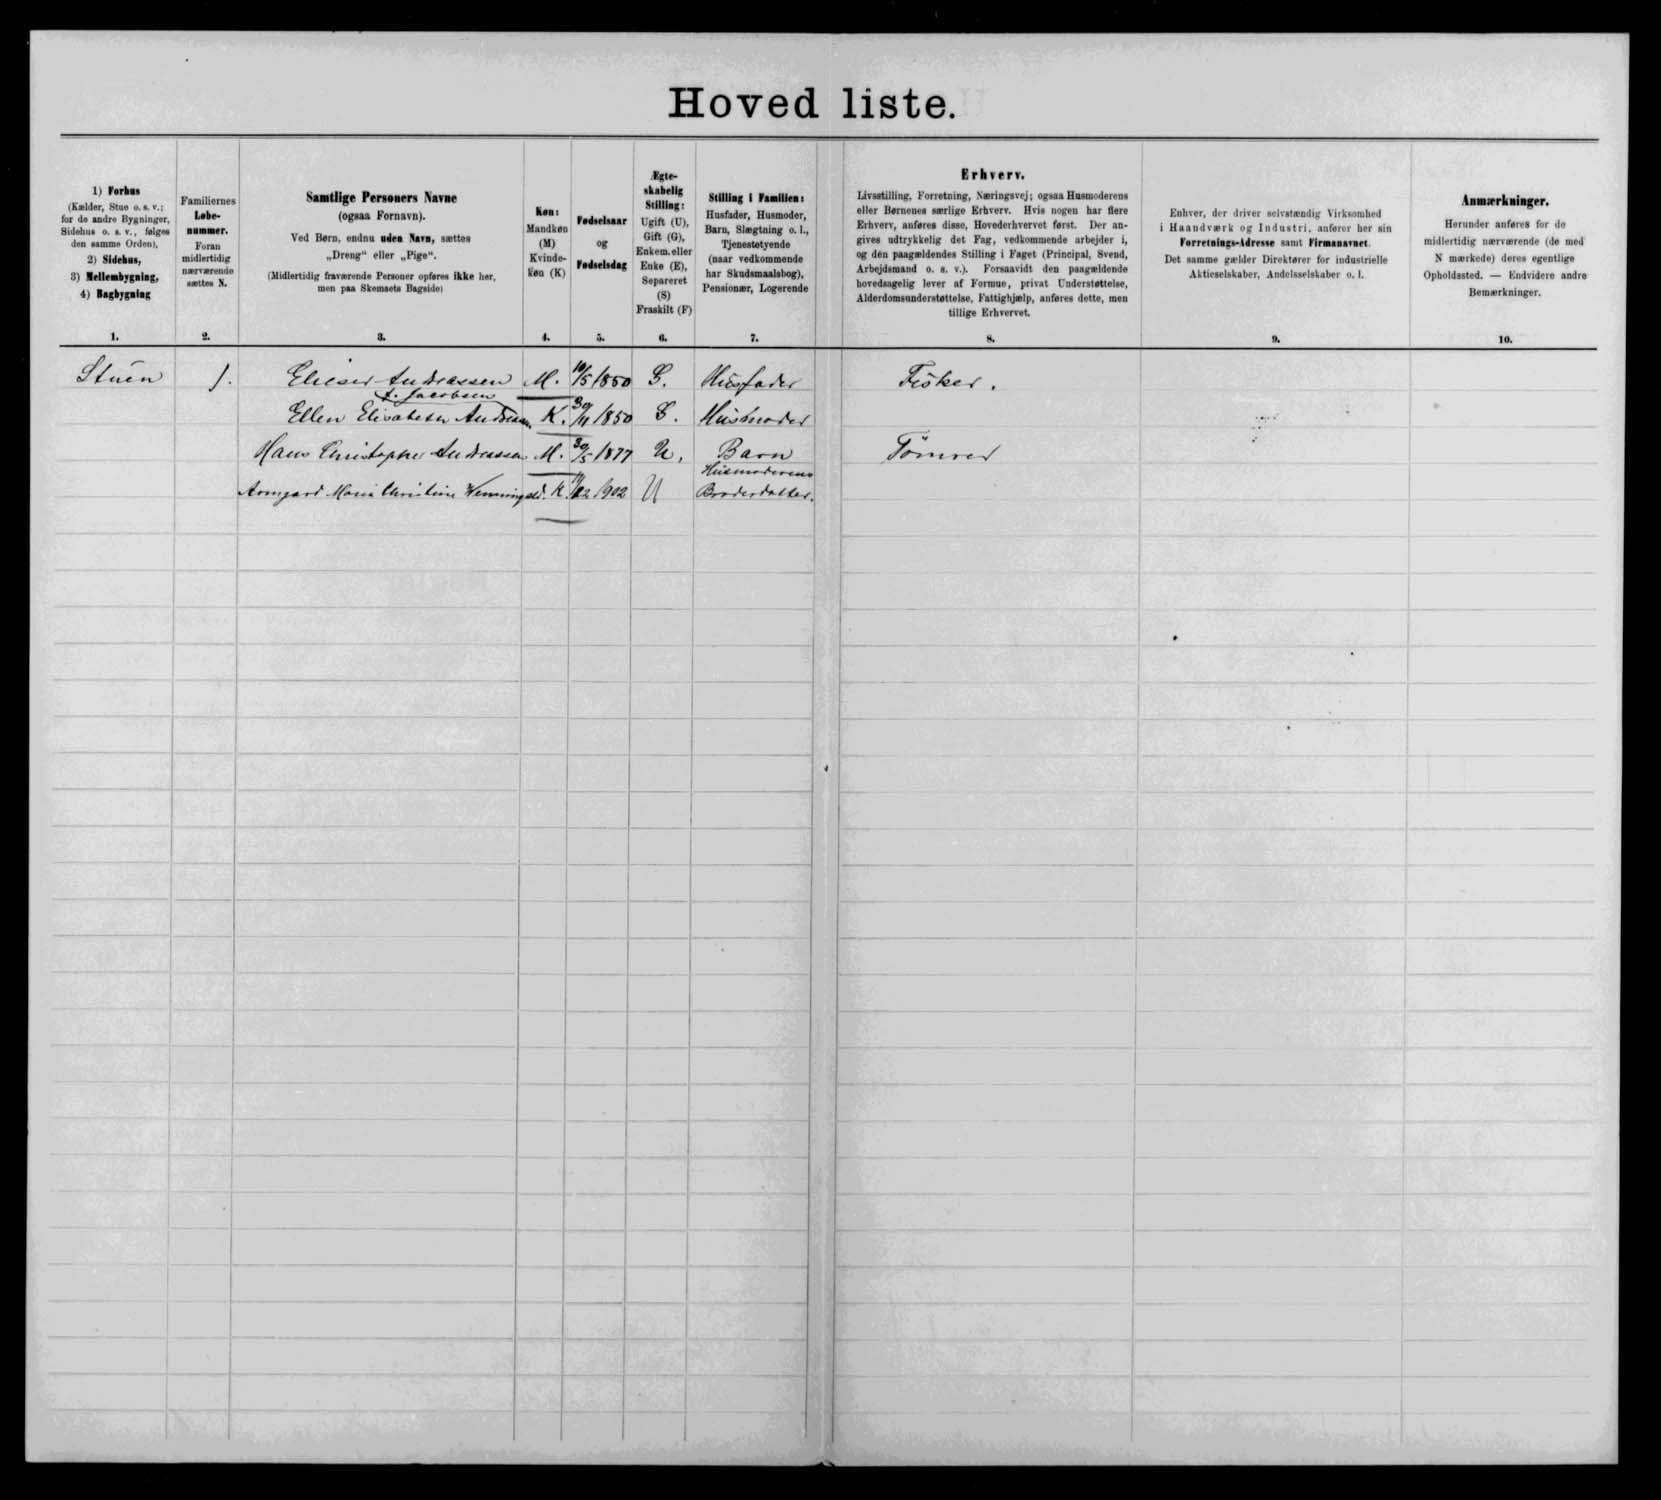 Hoved liste.
1) Forhus
(Kælder, Stue o. s. v.;
for de andre Bygninger,
Sidehus o. s. v., følges
den samme Orden),
2) Sidehus,
3) Mellembygning,
4) Bagbygning
1.
Familiernes
Løbe-
nummer.
Foran
midlertidig
nærværende
sættes N.
2.
Samtlige Personers Navne
(ogsaa Fornavn).
Ved Børn, endnu uden Navn, sættes
„Dreng“ eller „Pige“.
(Midlertidig fraværende Personer opføres ikke her,
men paa Skemaets Bagside)
3.
Køn:
Mandkøn
(M)
Kvinde-
køn (K)
4.
Fødselsaar
og
Fødselsdag
5.
Ægte-
skabelig
Stilling:
Ugift (U),
Gift (G),
Enkem. eller
Enke (E),
Separeret
(S)
Fraskilt (F)
6.
Stilling i Familien:
Husfader, Husmoder,
Barn, Slægtning o. l.,
Tjenestetyende
(naar vedkommende
har Skudsmaalsbog),
Pensionær, Logerende
7.
Erhverv.
Livsstilling, Forretning, Næringsvej; ogsaa Husmoderens
eller Børnenes særlige Erhverv. Hvis nogen har flere
Erhverv, anføres disse, Hovederhvervet først. Der an-
gives udtrykkelig det Fag, vedkommende arbejder i,
og den paagældendes Stilling i Faget (Principal, Svend,
Arbejdsmand o. s. v.). Forsaavidt den paagældende
hovedsagelig lever af Formue, privat Understøttelse,
Alderdomsunderstøttelse, Fattighjælp, anføres dette, men
tillige Erhvervet.
8.
Enhver, der driver selvstændig Virksomhed
i Haandværk og Industri, anfører her sin
Forretnings-Adresse samt Firmanavnet.
Det samme gælder Direktører for industrielle
Aktieselskaber, Andelsselskaber o. l.
9.
Anmærkninger.
Herunder anføres for de
midlertidig nærværende (de med
N mærkede) deres egentlige
Opholdssted. — Endvidere andre
Bemærkninger.
10.
Stuen 1. Elieser Andreassen M. 10/5 1850 G. Husfader Fisker.
f. Jacobsen
Ellen Elisabeth Andreassen K. 30/11 1850 G. Husmoder
Hans Christopher Andreassen M. 30/5 1877 U. Barn Tømrer
Husmoderens
Armgard Maria Christine Wenningsted. K. 11/12 1902 U Broderdatter.